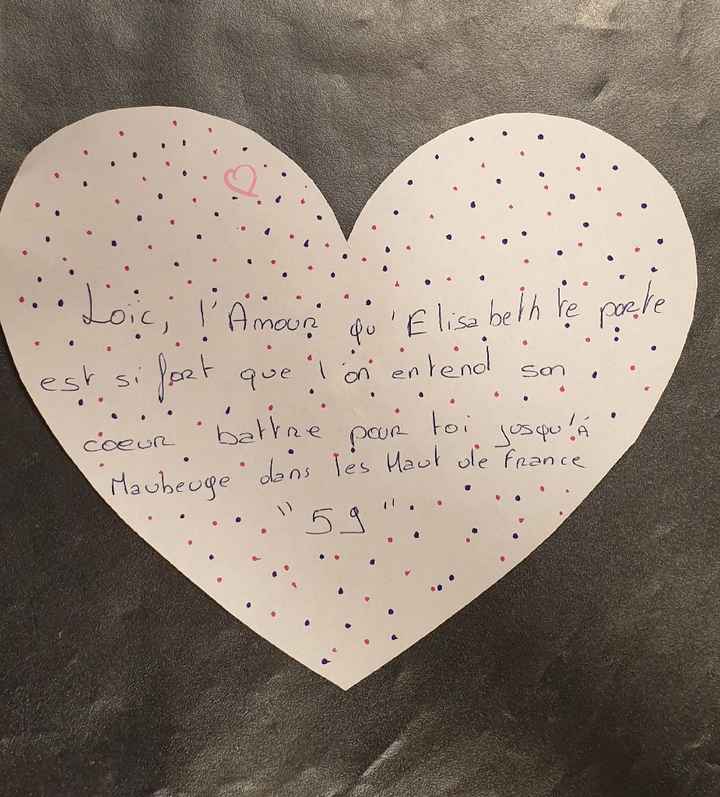 Loïc, l'Amour qu'Elisabeth te porte
est si fort que l'on entend son
coeur battre pour toi jusqu'à
Maubeuge dans les Haut de France
"59"